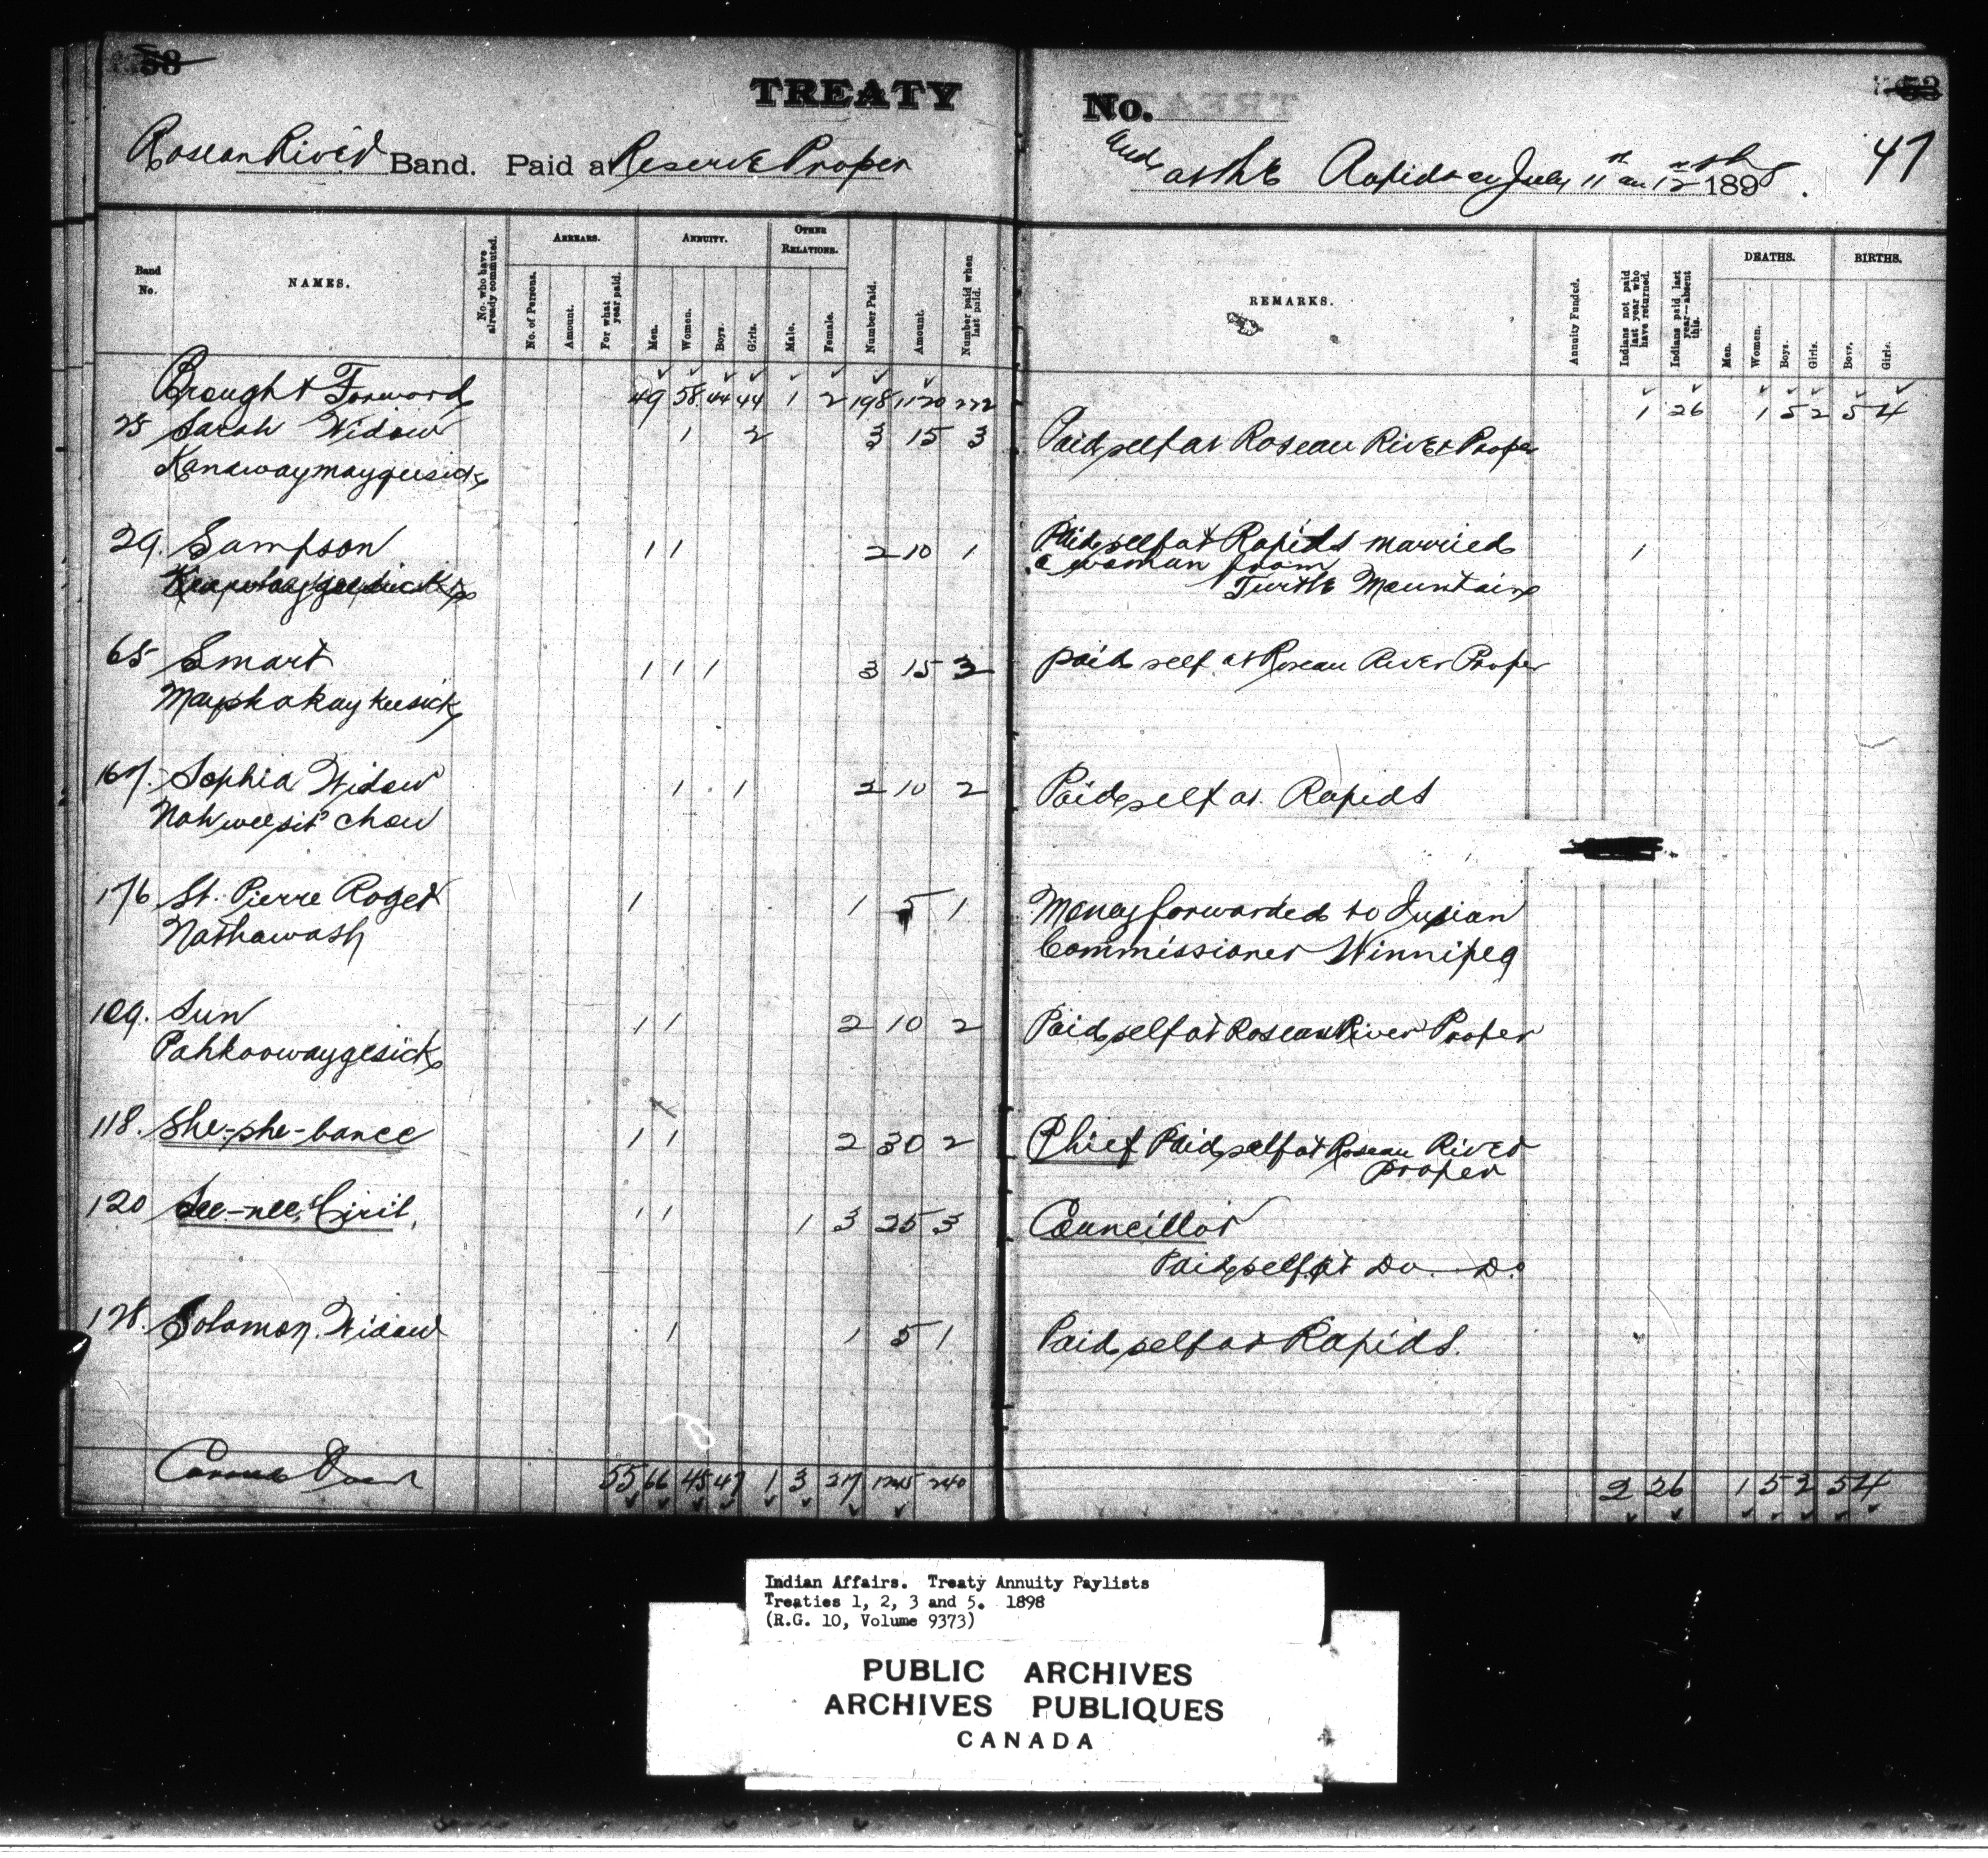 58
TREATY
No.
53
47
Roseau River Band. Paid at Reserve Proper
and at the Rapids on July 11th and 12th 1898.
Band No.
NAMES.
No. who have already commuted.
ARREARS.
No. of Persons.
Amount.
For what year paid.
ANNUITY.
Men.
Women.
Boys.
Girls.
OTHER RELATIONS.
Male.
Female.
Number Paid.
Amount.
Number paid when last paid.
REMARKS.
Annuity Funded.
Indians not paid last year who have returned.
Indians paid last year—absent this.
DEATHS.
Men.
Women.
Boys.
Girls.
BIRTHS.
Boys.
Girls.
Brought Forward 49 58 44 44 1 2 198 1120 222 1 26 1 5 2 5 4
25 Sarah Widow 1 2 3 15 3 Paid self at Roseau River Proper
Kanawaymaygeesick
29. Sampson 1 1 2 10 1 Paid self at Rapids married 1
a woman from
Turtle Mountain
65 Smart 1 1 1 3 15 3 paid self at Roseau River Proper
Mayshakaykeesick
167. Sophia Widow 1 1 2 10 2 Paid self at Rapids
Nahweesit chow
176 St. Pierre Roger 1 1 5 1 Money forwarded to Indian
Nathawash Commissioner Winnipeg
109. Sun 1 1 2 10 2 Paid self at Roseau River Proper
Pahkoowaygesick
118. She-she-bance 1 1 2 30 2 Chief Paid self at Roseau River
proper
120 See-nee, Ciril, 1 1 1 3 25 3 Councillor
Paid self at Do. Do.
128. Solomon Widow 1 1 5 1 Paid self at Rapids.
Carried Over 55 66 45 47 1 3 217 1245 240 2 26 1 5 2 5 4
Indian Affairs. Treaty Annuity Paylists
Treaties 1, 2, 3 and 5. 1898
(R.G. 10, Volume 9373)
PUBLIC ARCHIVES
ARCHIVES PUBLIQUES
CANADA